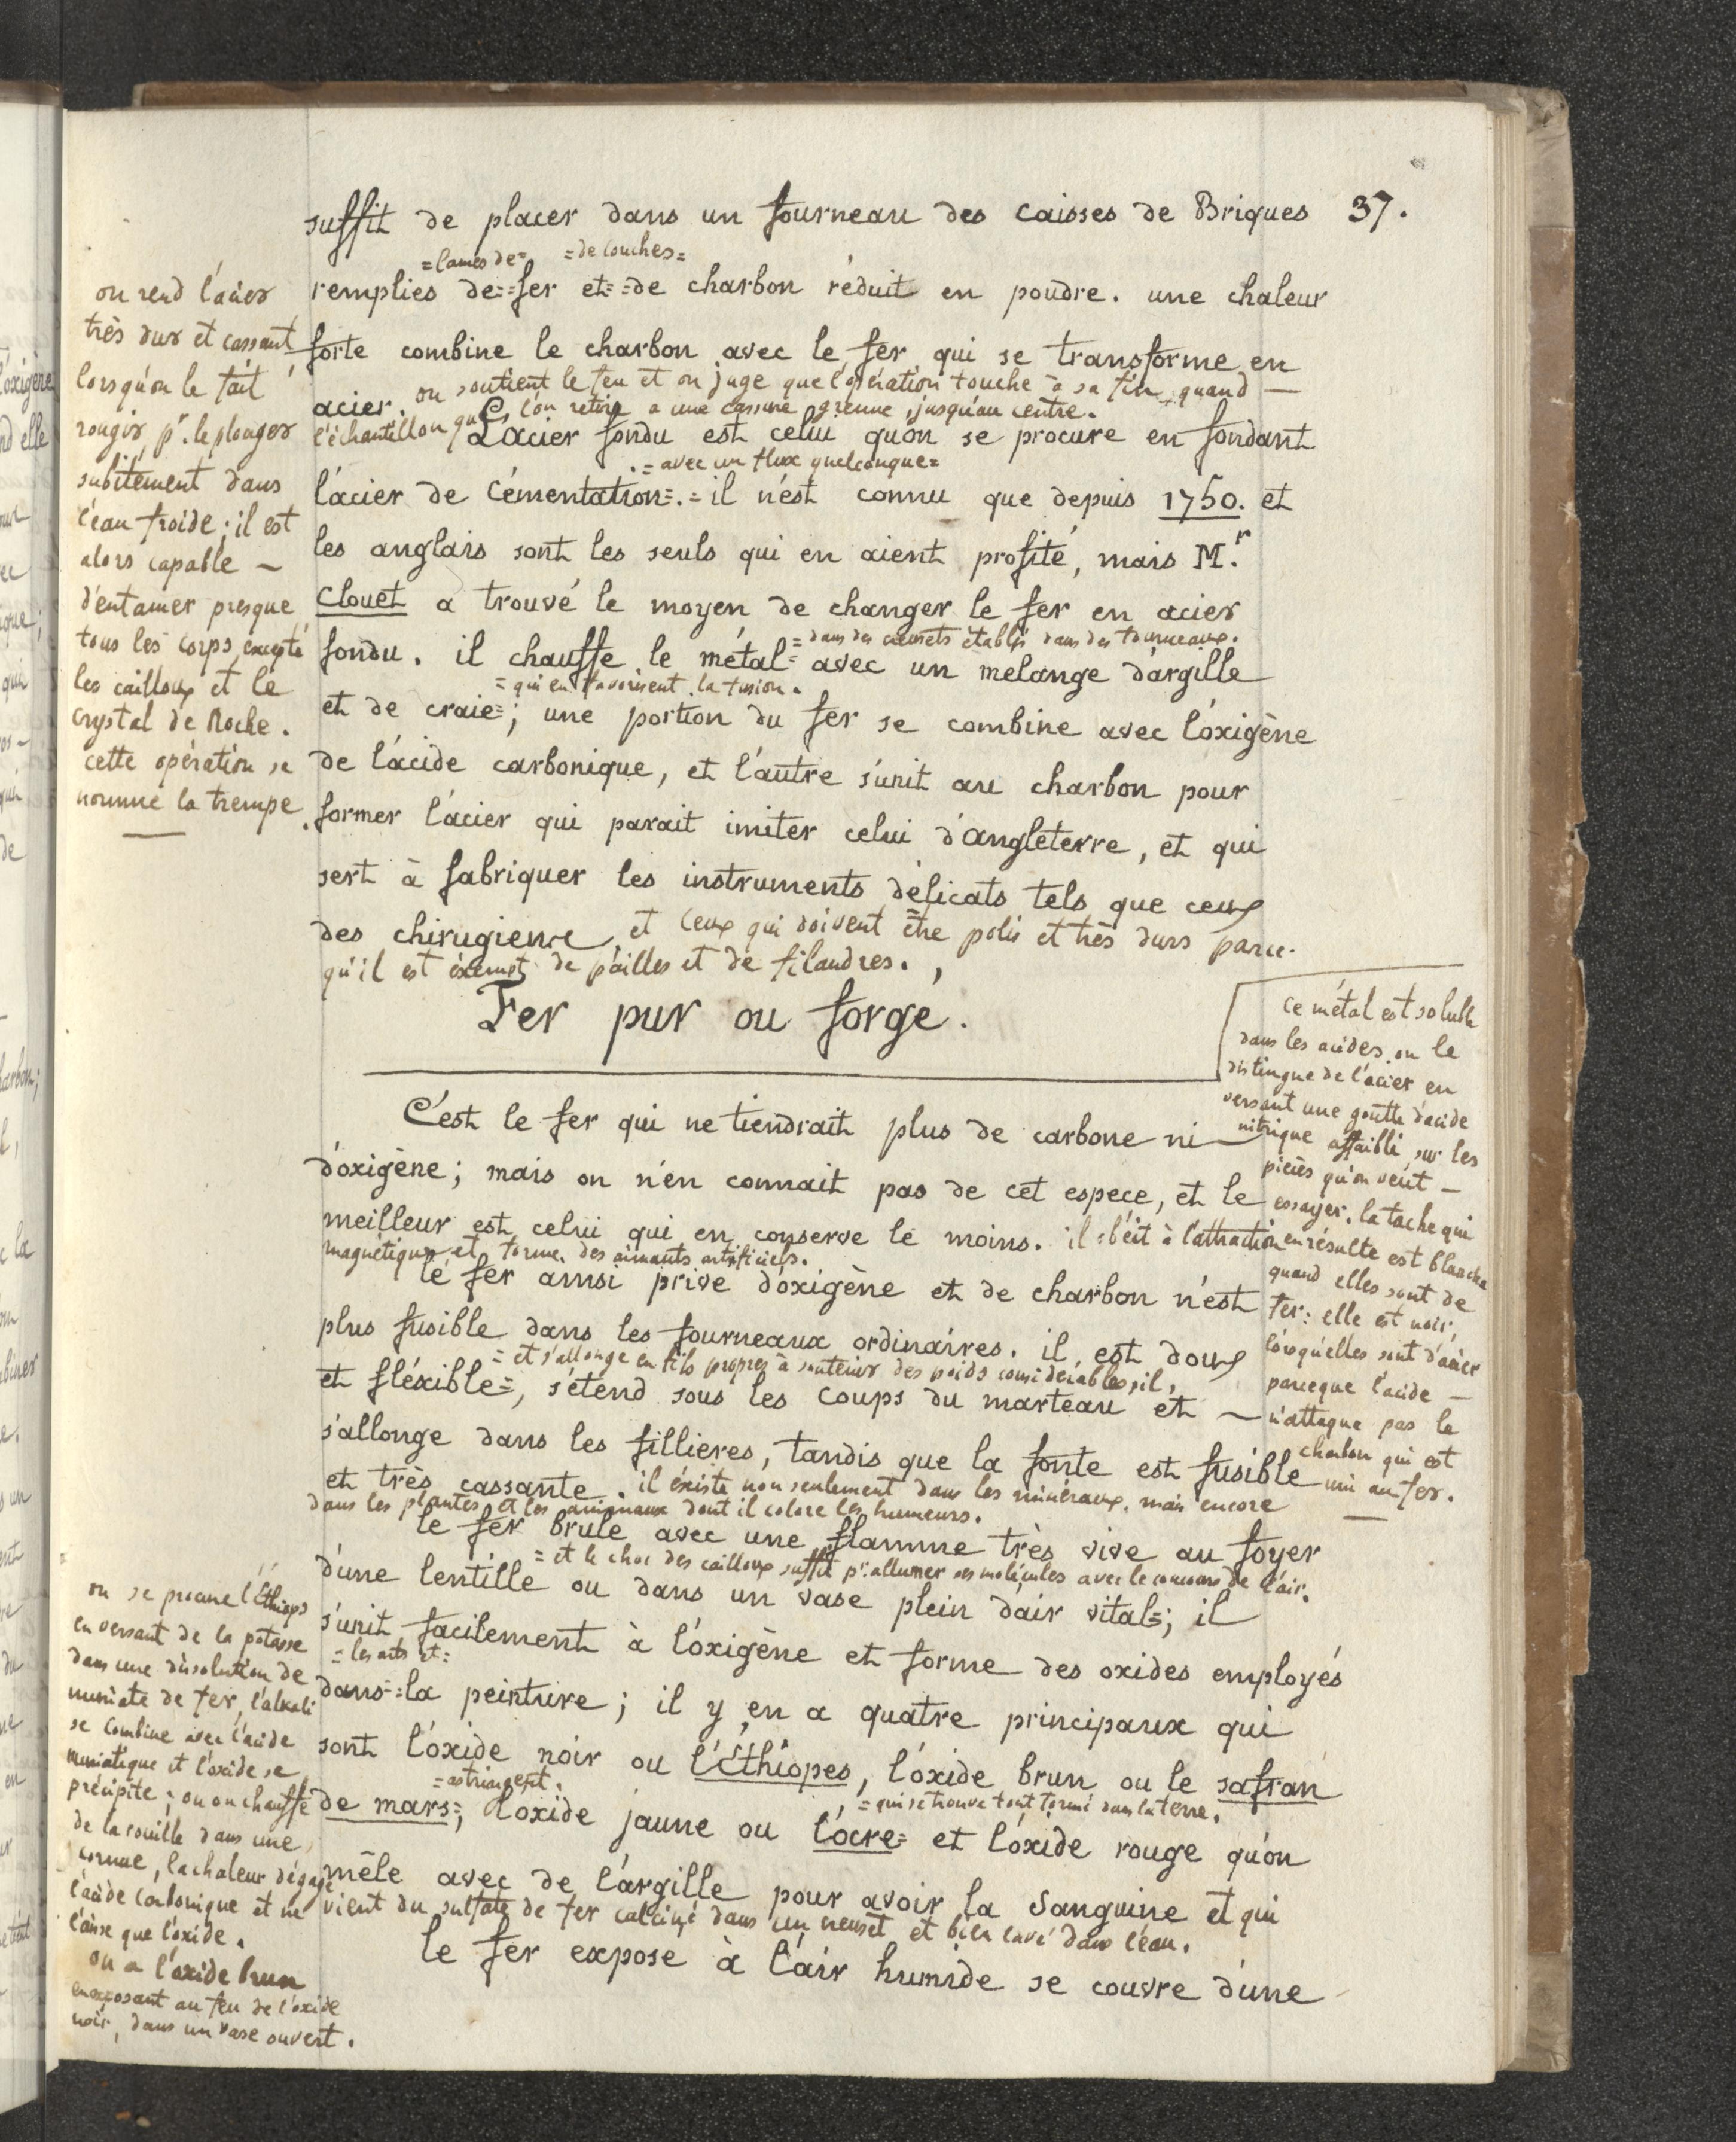 suffit de placer dans un fourneau des caisses de Briques 37.
=lames de= =de couches=
remplies de==fer et==de charbon réduit en poudre. une chaleur
forte combine le charbon avec le fer qui se transforme en
acier. on soutient le feu et on juge que l'opération touche à sa fin quand —
l'échantillon que l'on retire a une cassure grenue, jusqu'au centre.
L'acier fondu est celui qu'on se procure en fondant
.=avec un flux quelconque=
l'acier de Cémentation=.= il n'est connu que depuis 1750. et
les anglais sont les seuls qui en aient profité, mais M.r
Clouet a trouvé le moyen de changer le fer en acier
=dans des creusets établis dans des fourneaux.
fondu. il chauffe le métal= avec un mélange d'argille
=qui en favorisent la fusion.
et de craie=; une portion du fer se combine avec l'oxigène
de l'acide carbonique, et l'autre s'unit au charbon pour
former l'acier qui parait imiter celui d'angleterre, et qui
sert à fabriquer les instruments délicats tels que ceux
des chirugiens et ceux qui doivent être polis et très durs parce-
qu'il est éxempt de pailles et de filandres.
on rend l'acier
très dur et cassant,
lorsqu'on le fait
rougir, pr. le plonger
subitement dans
l'eau froide; il est
alors capable —
d'entamer presque
tous les corps, excepté
les cailloux et le
crystal de Roche.
cette opération se
nomme la trempe.
Fer pur ou forgé.
C'est le fer qui ne tiendrait plus de carbone ni —
d'oxigène; mais on n'en connait pas de cet espece, et le
meilleur est celui qui en conserve le moins. il obéit à l'attraction
magnétique et forme des aimants artificiels.
le fer ainsi privé d'oxigène et de charbon n'est
plus fusible dans les fourneaux ordinaires. il est doux
=et s'allonge en fils propres à soutenir des poids considérables, il,
et fléxible=, s'étend sous les coups du marteau et —
s'allonge dans les fillieres, tandis que la fonte est fusible
et très cassante. il éxiste non seulement dans les minéraux, mais encore
dans les plantes et les animaux dont il colore les humeurs.
le fer brule avec une flamme très vive au foyer
=et le choc des cailloux suffit pr. allumer ses molécules avec le concours de l'air.
d'une lentille ou dans un vase plein d'air vital=; il
s'unit facilement à l'oxigène et forme des oxides employés
=les arts et=
dans==la peinture; il y en a quatre principaux qui
sont l'oxide noir ou l'Éthiopes, l'oxide brun ou le safran
=astringent. =qui se trouve tout formé dans la terre.
de mars=; l'oxide jaune ou l'ocre= et l'oxide rouge qu'on
mêle avec de l'argille pour avoir la Sanguine et qui
vient du sulfate de fer calciné dans un creuset et bien lavé dans l'eau.
le fer exposé à l'air humide se couvre d'une
ce métal est soluble
dans les acides. on le
distingue de l'acier en
versant une goutte d'acide
nitrique affaibli, sur les
pièces qu'on veut —
essayer. la tache qui
en résulte est blanche
quand elles sont de
fer: elle est noir,
lorsqu'elles sont d'acier
parceque l'acide —
n'attaque pas le
charbon qui est
uni au fer.
on se procure l'Éthiops
en versant de la potasse
dans une dissolution de
muriate de fer, l'alkali
se combine avec l'acide
muriatique et l'oxide se
précipite; ou on chauffe
de la rouille dans une
cornue, la chaleur dégage
l'acide carbonique et ne
laisse que l'oxide.
on a l'oxide brun
en exposant au feu de l'oxide
noir, dans un vase ouvert.